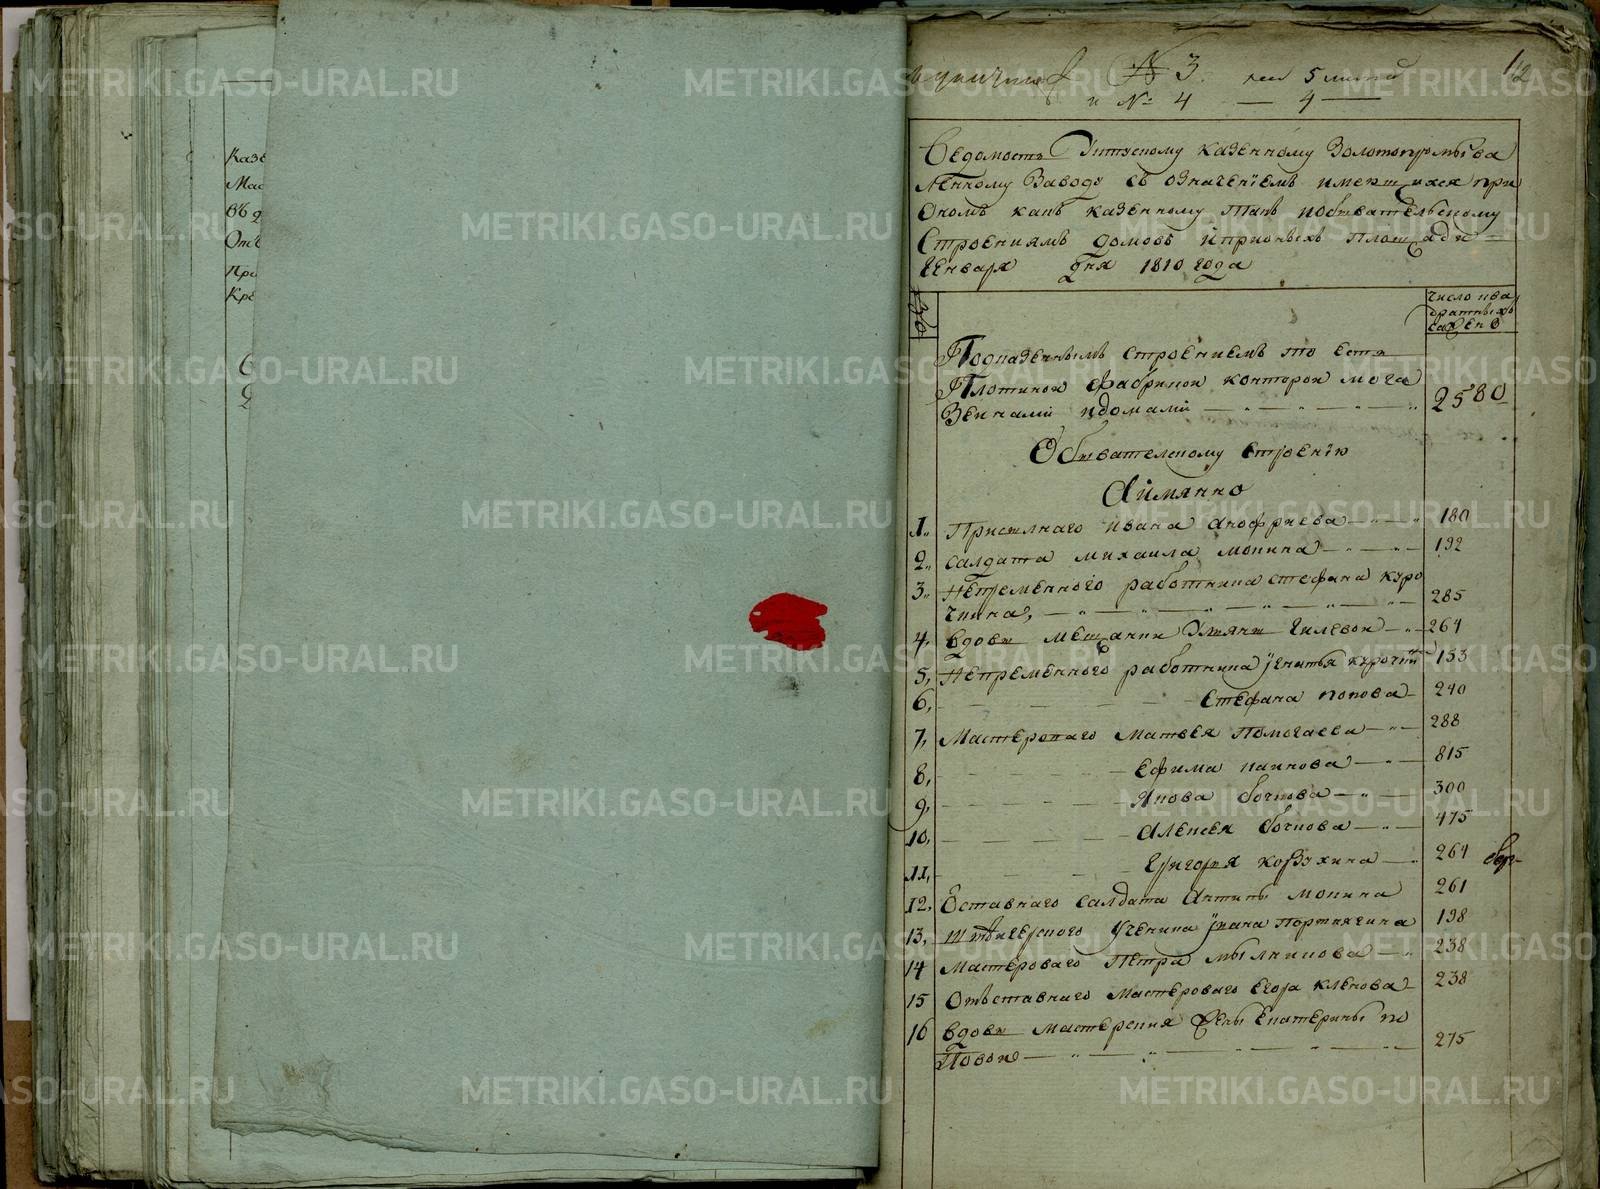 Казе
Мас
Въ
Отъ
При
Кре
№ 3. 5
и № 4 — 4 —
12
Ведомость казенному Золотопромыва
ленному Заводу съ означениемъ имеющихся при
ономъ какъ казенному такъ иобывательскому
Строениямъ домовъ иприоныхъ площади —
Генваря дня 1810 года
число ква
дратныхъ
саженъ
Подказеннымъ строениемъ то есть
Плотиной фабрикой конторой мага
Зеинами идомами 2580
Обывателскому строению
Аимянно
1. Ивана Анофриева 180
2. Салдата Михаила Мокина 192
3. Непременного работника Стефана Куро
чкина 285
4, вдовы Гилевой 264
5, Непременного работника Игнатья Курочки 153
6, Стефана Попова 240
7, Мастероваго Матвея Помогаева 288
8, Ефима 815
9, Якова Бочкова 300
10, Алексея Бочкова 475
11, Григорья Корзухина 264
12, Оставнаго салдата Антипы Мокина 261
13, Ученика Ивана Портнягина 198
14 Мастероваго Петра Мылникова 238
15 Отъставнаго Мастероваго Егора Клекова 238
16 вдовы Мастерския жены Екатерины По
повой 275
METRIKI.GASO-URAL.RU